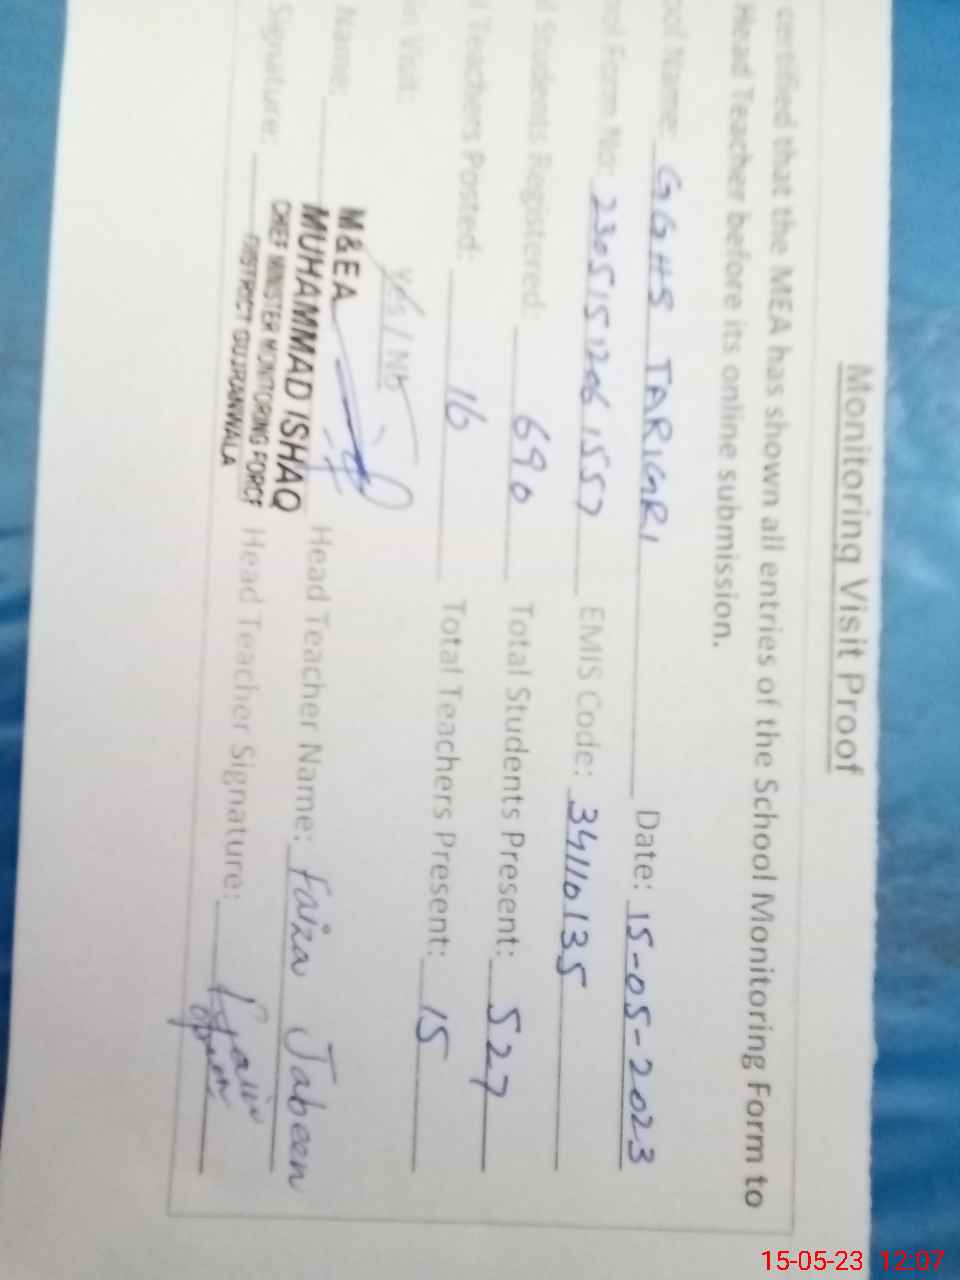 Monitoring Visit Proof
certified that the MEA has shown all entries of the School Monitoring Form to
Head Teacher before its online submission.
ool Name: GGHS TARIGRI Date: 15-05-2023
ol Form No: 2305151206 1557 EMIS Code: 34110135
l Students Registered: 690 Total Students Present: 527
l Teachers Posted: 16 Total Teachers Present: 15
in Visit: Yes / No
M&EA
Name: MUHAMMAD ISHAQ Head Teacher Name: Faiza Jabeen
CHIEF MINISTER MONITORING FORCE
Signature: DISTRICT GUJRANWALA Head Teacher Signature:
15-05-23 12:07